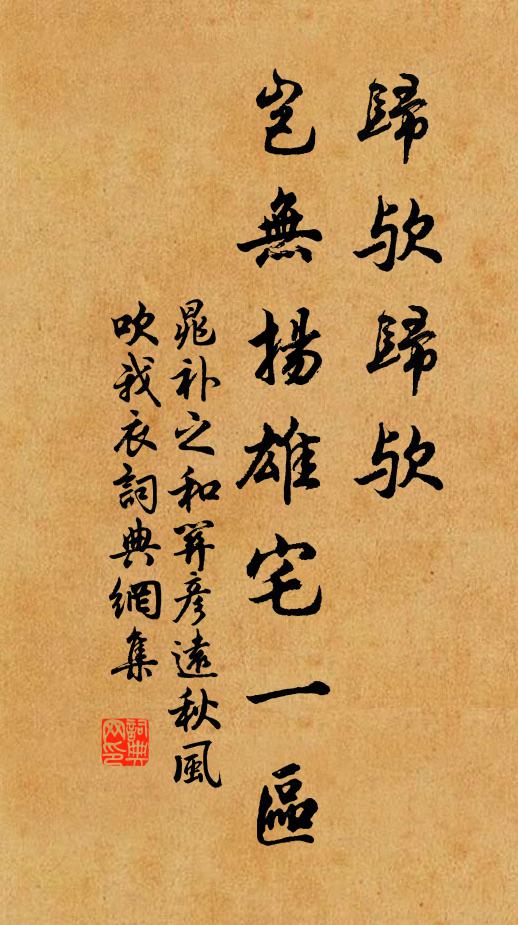 歸歟歸歟
豈無揚雄宅一區
晁补之和關彥遠秋風
吹我衣詞典網集
詞典
网印